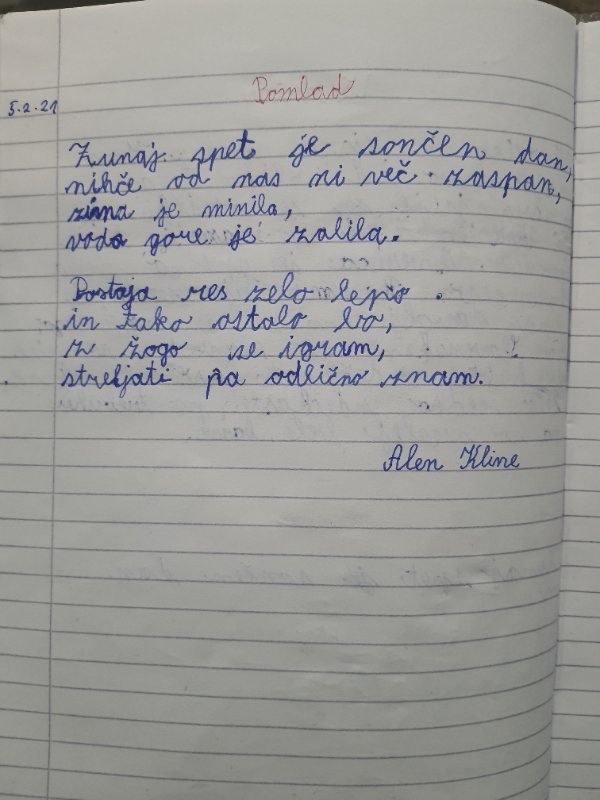 Pomlad
5.2.21
Zunaj spet je sončen dan,
nihče od nas ni več zaspan,
zima je minila,
voda gore je zalila.
Postaja res zelo lepo.
in tako ostalo bo,
z žogo se igram,
streljati pa odlično znam.
Alen Kline